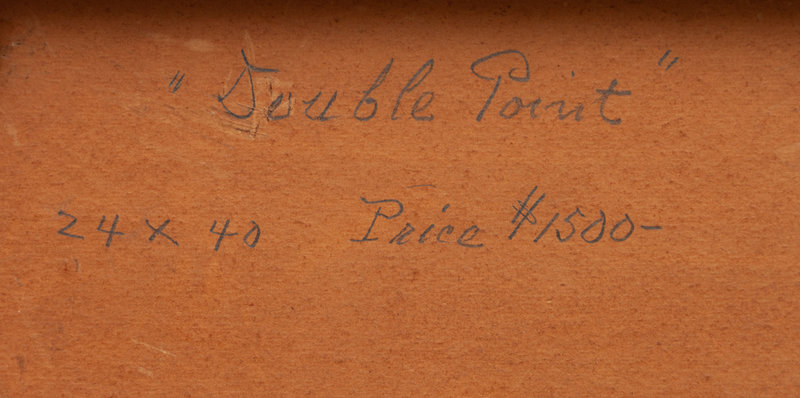 "Double Point"
24 x 40 Price $1500-